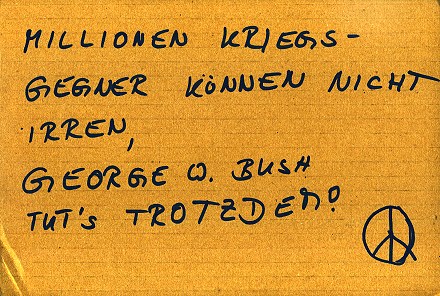 MILLIONEN KRIEGS-
GEGNER KÖNNEN NICHT
IRREN,
GEORGE W. BUSH
TUT'S TROTZDEM!